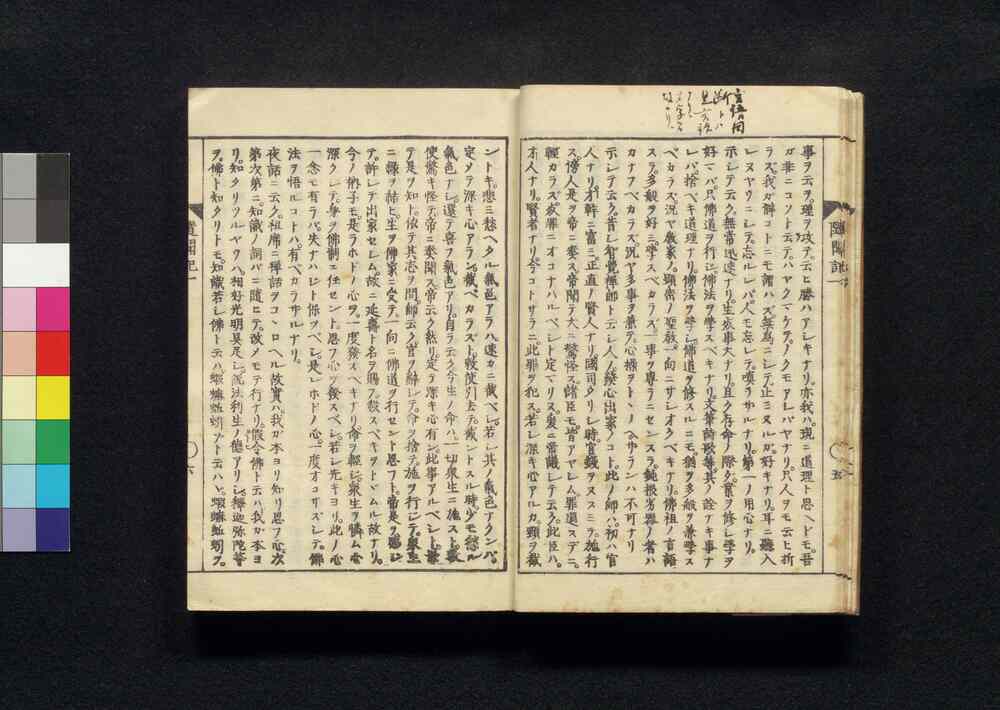 隨聞記一
事ヲ云ヲ理ヲ攻テ云ヒ勝ハアシキナリ亦我ハ現ニ道理ト思ヘドモ吾
ガ非ニコソト云テハヤクマケテノクモアシバヤナリ只人ヲモ云ヒ折
ラズ我ガ解コトニモ謂ハズ無爲ニシテ止ミヌルガ好キナリ耳ニ聽入
レヌヤウニシテ忘ルレバ人モ忘レテ嗔ラザルナリ第一ノ用心ナリ
示シテ云ク無常迅速ナリ生死事大ナリ且ク存命ノ際ダ業ヲ修シ學ヲ
好マバ只佛道ヲ行ジ佛法ヲ學スベキナリ文筆詩歌等其ノ詮ナキ事ナ
レバ捨ベキ道理ナリ佛法ヲ學シ佛道ヲ修スルニモ猶ヲ多般ヲ兼學ス
ベカラズ況ヤ教家ノ顯密ノ聖教一向ニサシオクベキナリ佛祖ノ言語
スラ多般ヲ好ミ學スベカラズ一事ヲ專ラニセンスラ鈍根劣器ノ者ハ
カナフベカラズ況ヤ多事ヲ兼テ心操ヲトヽノヘザランハ不可ナリ
示シテ云ク昔シ智覺禪師ト云シ人ノ發心出家ノコト此ノ師ハ初ハ官
人ナリ才幹ニ富ミ正直ノ賢人ナリ國司タリシ時官錢ヲヌスミテ施行
ス傍人是ヲ帝ニ奏ス帝聞テ大ニ驚怪ス諸臣モ皆アヤシム罪過スデニ
輕カラズ死罪ニオコナハルベシト定マリヌ爰ニ帝議シテ云ク此臣ハ
才人ナリ賢者ナリ今コトサラニ此罪ヲ犯ス若シ深キ心アルカ頸ヲ截
ントキ悲ミ愁ヘタル氣色アラバ速カニ截ベシ若シ其ノ氣色ナクンバ
定メテ深キ心アラン截ベカラズト敕使引去テ截ントスル時少モ愁ル
氣色ナシ還テ喜ブ氣色アリ自ラ云ク今生ノ命ハ一切衆生ニ施スト敕
使驚キ怪テ帝ニ奏聞ス帝云ク然リ定テ深キ心有ン此事アルベシト兼
テ是ヲ知ト依テ其志ヲ問師云ク官ヲ辭シテ命ヲ捨テ施ヲ行ジテ衆生
ニ緣ヲ結ヒ生ヲ佛家ニ受テ一向ニ佛道ヲ行セント思フト帝是ヲ感シ
テ許シテ出家セシム故ニ延壽ト名ヲ賜フ殺スベキヲトヾムル故ナリ
今ノ衲子モ是ラホドノ心ヲ一度發スベキナリ命ヲ輕シ衆生ヲ憐ム心
深クシテ身ヲ佛制ニ任セント思フ心ヲ發スベシ若シ先キヨリ此ノ心
一念モ有ラバ失ナハジト保ツベシ是レホドノ心一度オコサズシテ佛
法ヲ悟ルコトハ有ベカラザルナリ
夜話ニ云ク祖席ニ禪話ヲコヽロヘル故實ハ我ガ本ヨリ知リ思フ心次
第次第ニ知識ノ詞バニ隨ヒテ改メモテ行ナリ假令佛ト云ハ我ガ本ヨ
リ知タリツルヤウハ相好光明具足シ説法利生ノ德アリシ釋迦彌陀等
ヲ佛ト知タリトモ知識若シ佛ト云ハ蝦蟆蚯蚓ナト云ハヾ蝦蟆蚯蚓ヲ